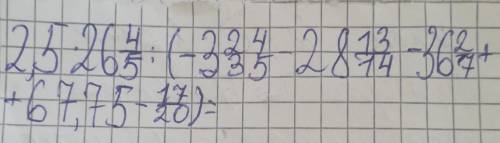 2,5 · 26 4/5 : (-3 24/35 - 28 13/14 - 36 2/7 +
+ 67,75 - 17/20) =